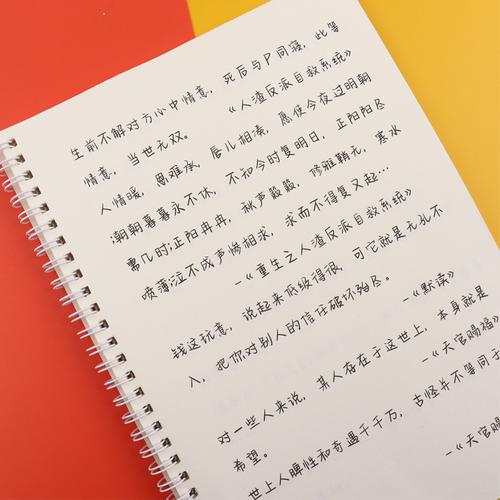 生前不解对方心中情意，死后与P同寝，此等
情意，当世无双。 《人渣反派自救系统》
人情暖，恩难承，唇儿相凑，愿使今夜过明朝
,朝朝暮暮永不休，不知今时复明日，正阳阳尽
需几时;正阳冉冉，秋声簌簌，修雅鞘亢，寒水
喷薄;泣不成声惨相求，求而不得复又起…
-《重生之人渣反派自救系统》
钱这玩意，说起来低级得很，可它就是无孔不
入，把你对别人的信任破坏殆尽。
-《默读》
对一些人来说，某人存在于这世上，本身就是
希望。 -《天官赐福》
世上人脾性和奇遇千千万，古怪并不等同于
-《天官赐